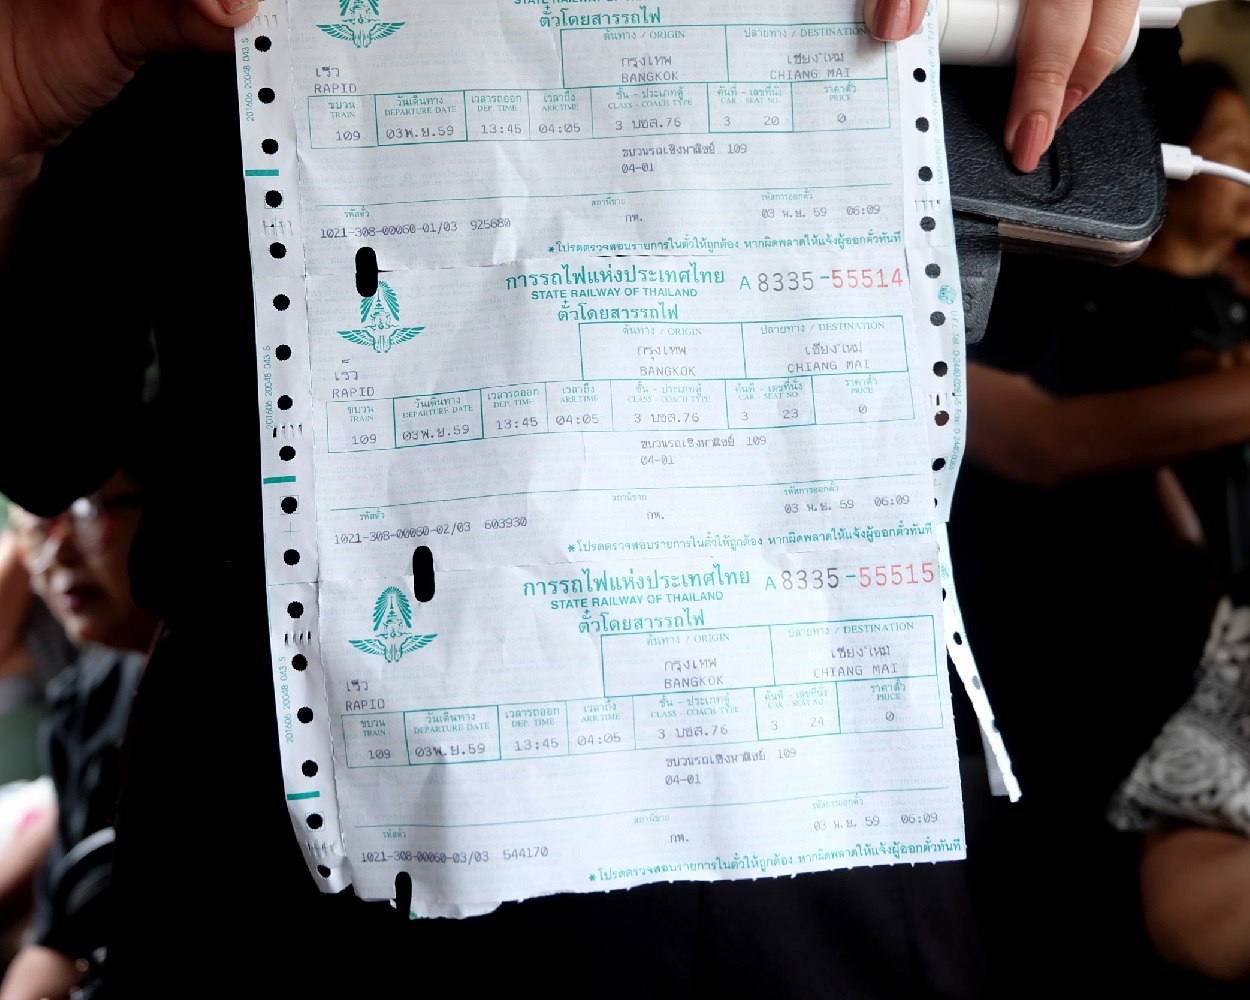 STATE RAILWAY OF THAILAND
ตั๋วโดยสารรถไฟ
ต้นทาง / ORIGIN ปลายทาง / DESTINATION
กรุงเทพ เชียงใหม่
เร็ว BANGKOK CHIANG MAI
RAPID
ขบวน วันเดินทาง เวลารถออก เวลาถึง ชั้น - ประเภทตู้ คันที่ - เลขที่นั่ง ราคาตั๋ว
TRAIN DEPARTURE DATE DEP. TIME ARR.TIME CLASS - COACH TYPE CAR - SEAT NO. PRICE
109 03พ.ย.59 13:45 04:05 3 บชส.76 3 20 0
ขบวนรถเชิงพาณิชย์ 109
04-01
รหัสตั๋ว สถานีขาย รหัสการออกตั๋ว
1021-308-00060-01/03 925680 กท. 03 พ.ย. 59 06:09
*โปรดตรวจสอบรายการในตั๋วให้ถูกต้อง หากผิดพลาดให้แจ้งผู้ออกตั๋วทันที
การรถไฟแห่งประเทศไทย A 8335-55514
STATE RAILWAY OF THAILAND
ตั๋วโดยสารรถไฟ
ต้นทาง / ORIGIN ปลายทาง / DESTINATION
กรุงเทพ เชียงใหม่
เร็ว BANGKOK CHIANG MAI
RAPID
ขบวน วันเดินทาง เวลารถออก เวลาถึง ชั้น - ประเภทตู้ คันที่ - เลขที่นั่ง ราคาตั๋ว
TRAIN DEPARTURE DATE DEP. TIME ARR.TIME CLASS - COACH TYPE CAR - SEAT NO. PRICE
109 03พ.ย.59 13:45 04:05 3 บชส.76 3 23 0
ขบวนรถเชิงพาณิชย์ 109
04-01
รหัสตั๋ว สถานีขาย รหัสการออกตั๋ว
1021-308-00060-02/03 603930 กท. 03 พ.ย. 59 06:09
*โปรดตรวจสอบรายการในตั๋วให้ถูกต้อง หากผิดพลาดให้แจ้งผู้ออกตั๋วทันที
การรถไฟแห่งประเทศไทย A 8335-55515
STATE RAILWAY OF THAILAND
ตั๋วโดยสารรถไฟ
ต้นทาง / ORIGIN ปลายทาง / DESTINATION
กรุงเทพ เชียงใหม่
เร็ว BANGKOK CHIANG MAI
RAPID
ขบวน วันเดินทาง เวลารถออก เวลาถึง ชั้น - ประเภทตู้ คันที่ - เลขที่นั่ง ราคาตั๋ว
TRAIN DEPARTURE DATE DEP. TIME ARR.TIME CLASS - COACH TYPE CAR - SEAT NO. PRICE
109 03พ.ย.59 13:45 04:05 3 บชส.76 3 24 0
ขบวนรถเชิงพาณิชย์ 109
04-01
รหัสตั๋ว สถานีขาย รหัสการออกตั๋ว
1021-308-00060-03/03 544170 กท. 03 พ.ย. 59 06:09
*โปรดตรวจสอบรายการในตั๋วให้ถูกต้อง หากผิดพลาดให้แจ้งผู้ออกตั๋วทันที
201606 20048 043 5
201606 20048 043 5
201606 20048 043 5